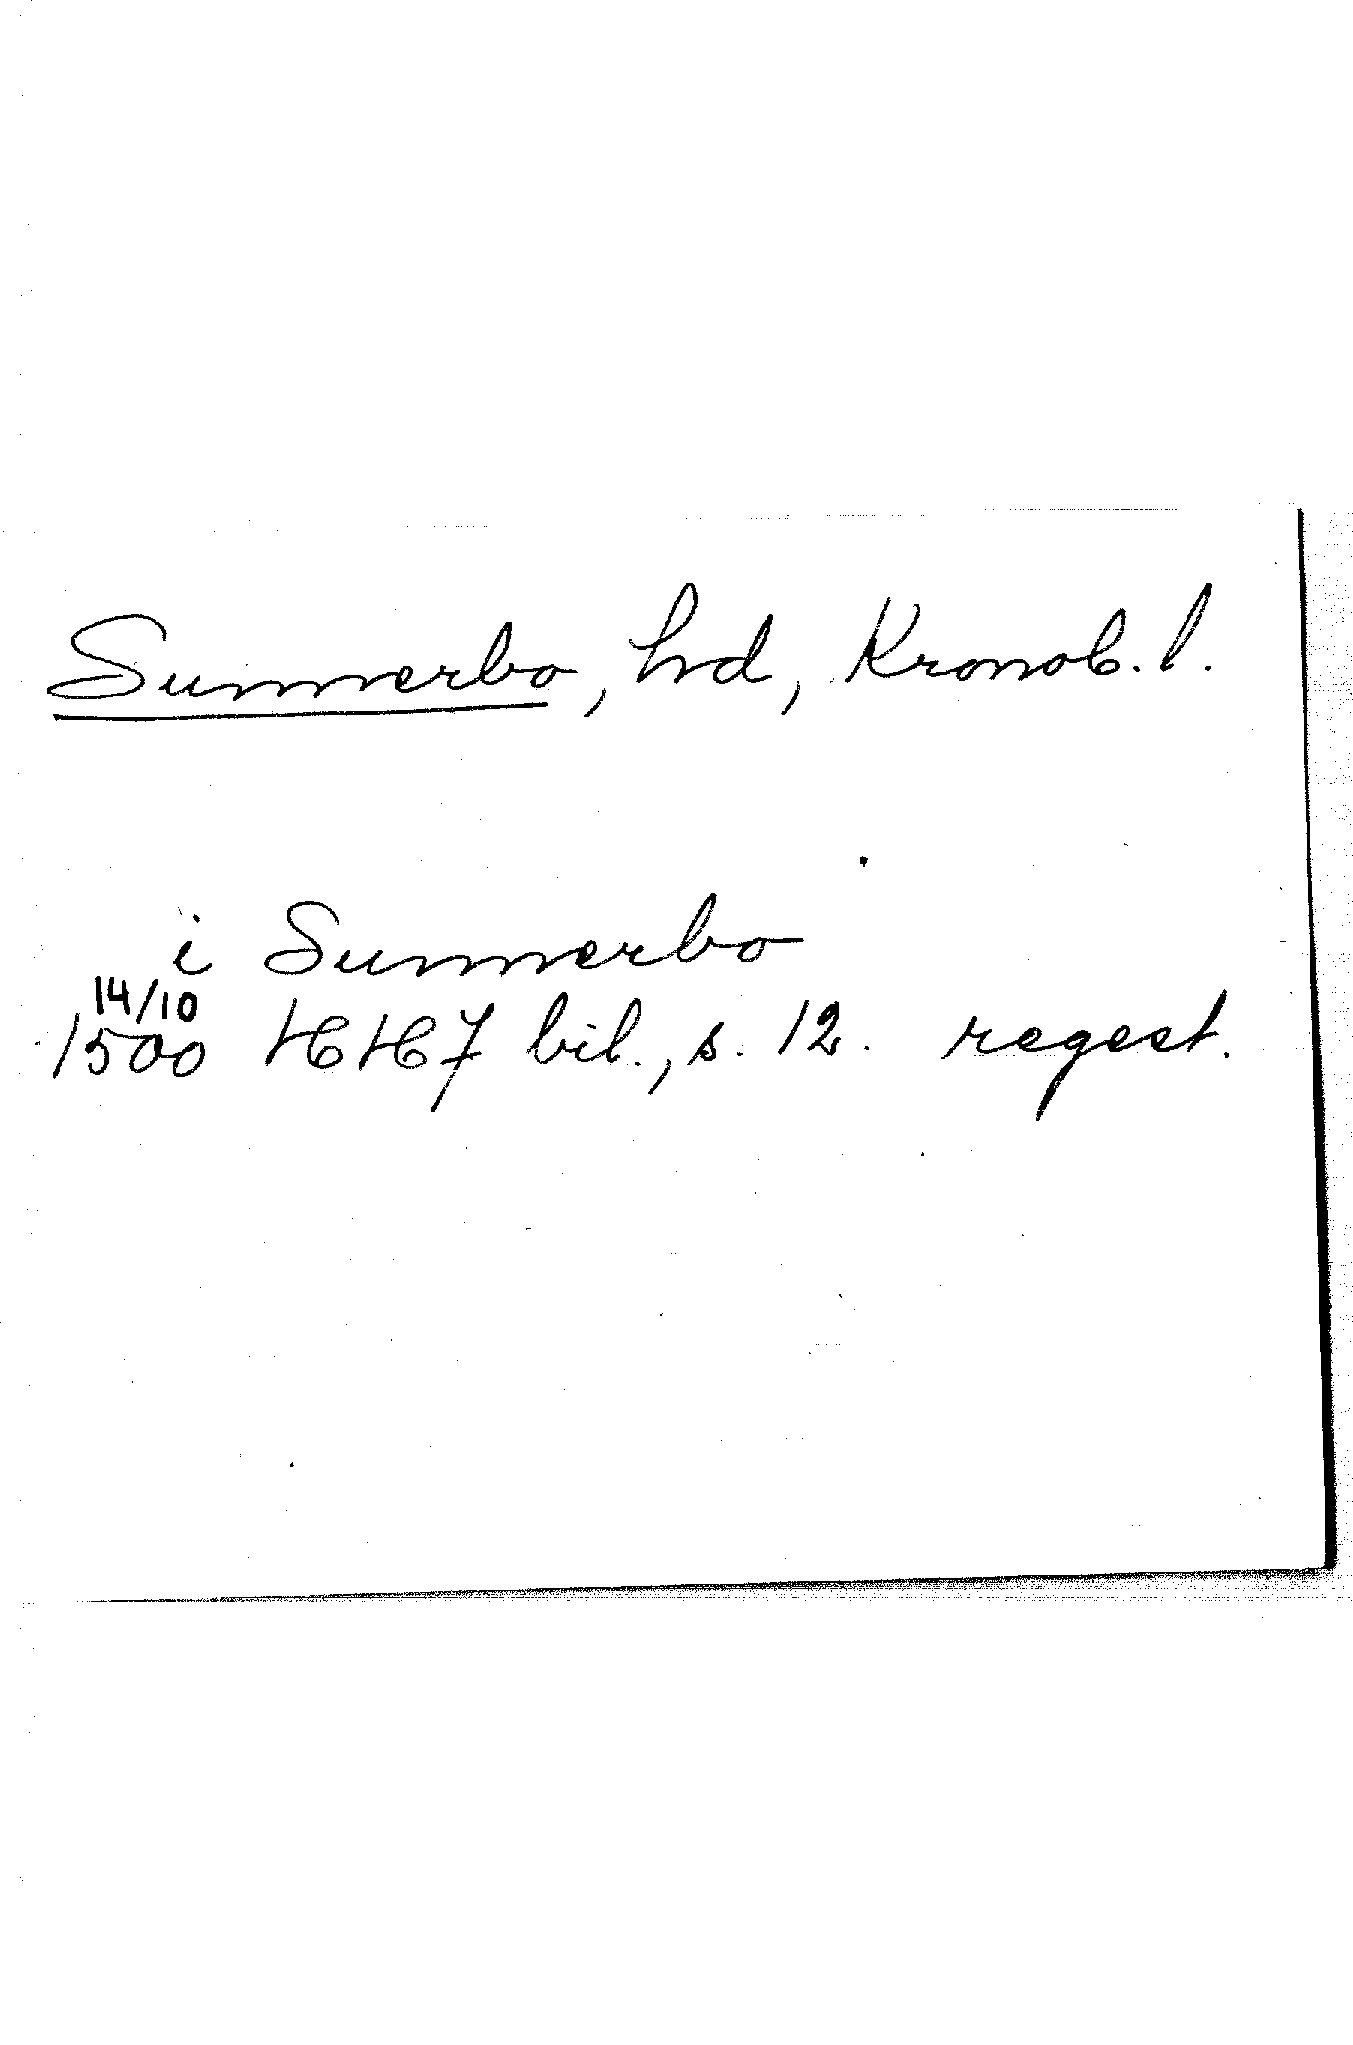 Sunnerbo, hd, Kronob. l.
i Sunnerbo
14/10
1500 HH 7 bil., s. 12. regest.